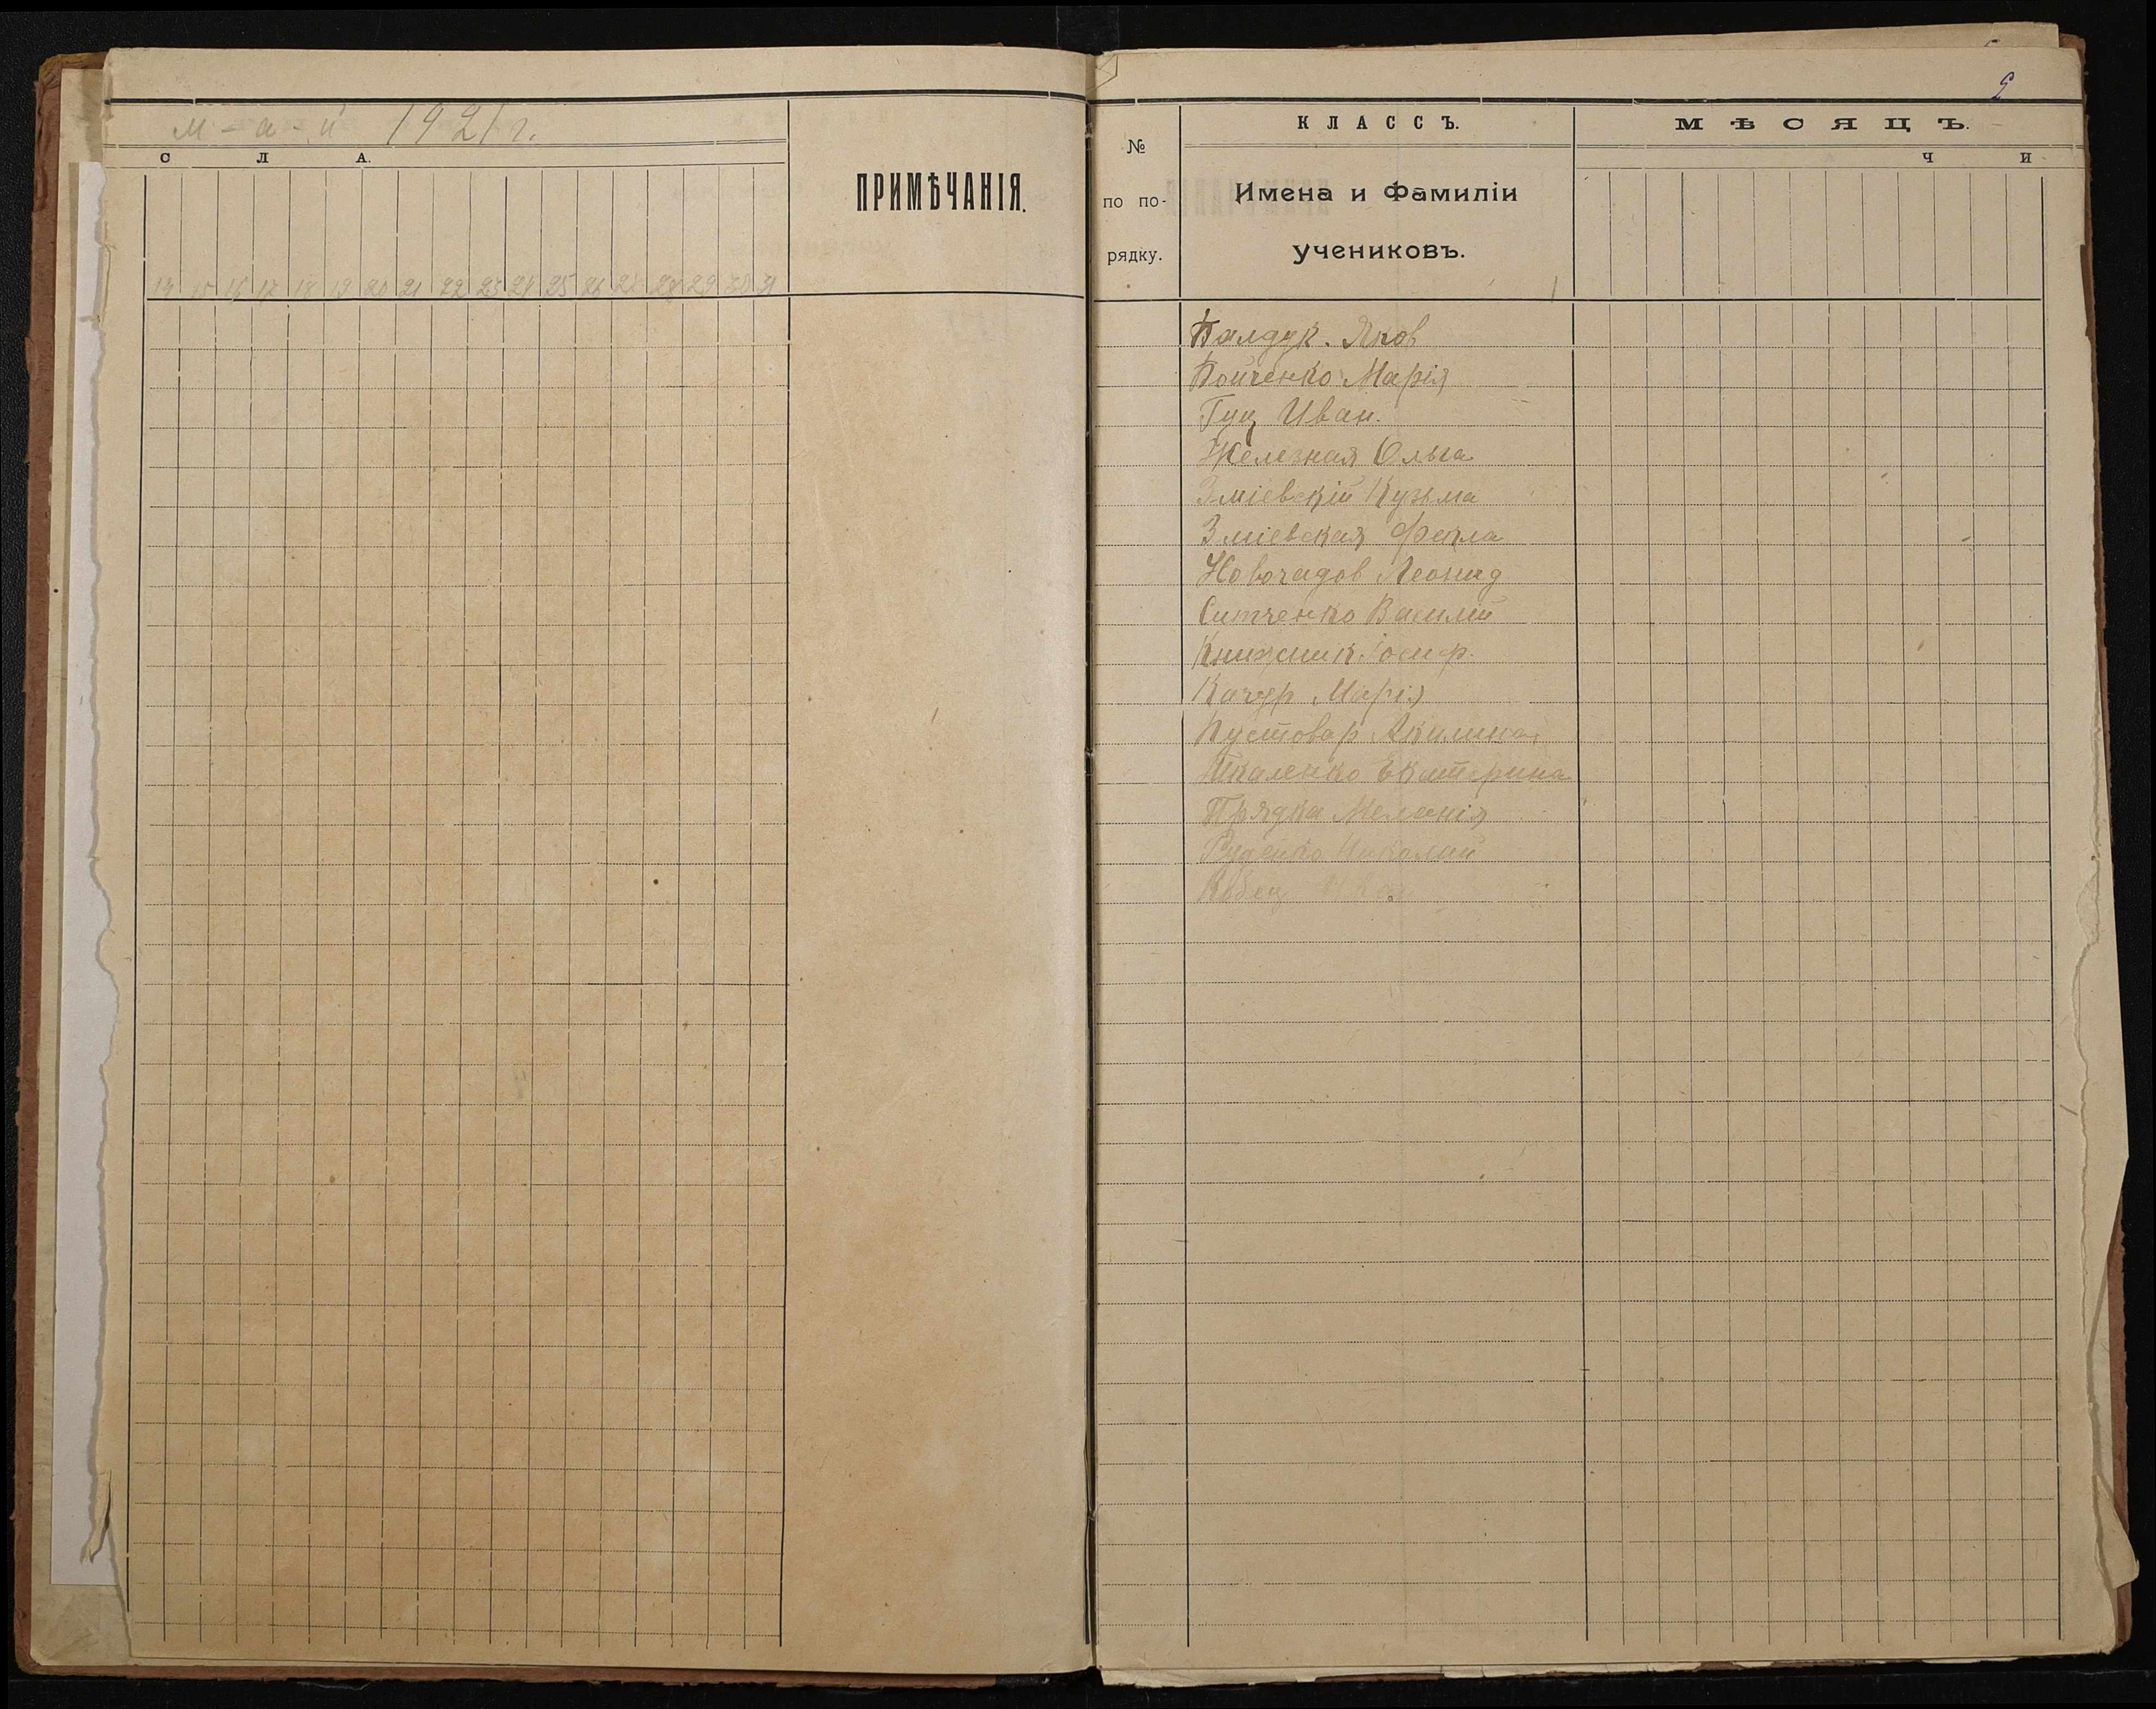 м-а-й 1921 г.
С Л А.
ПРИМѢЧАНІЯ.
14 15 16 17 18 19 20 21 22 23 24 25 26 27 28 29 30 31
№
по по-
рядку.
КЛАССЪ.
Имена и Фамиліи
учениковъ.
МѢСЯЦЪ.
Ч И
Балдук. Яков
Бойченко Марія
Гуц Иван.
Железная Ольга
Зміевскій Кузьма
Зміевская Фекла
Новочадов Леонид
Ситченко Василій
Книжник Іосиф.
Качур Марія
Пустовар Акилина
Шкаленко Екатерина
Прядка Меланія
Руденко Николай
Кобец